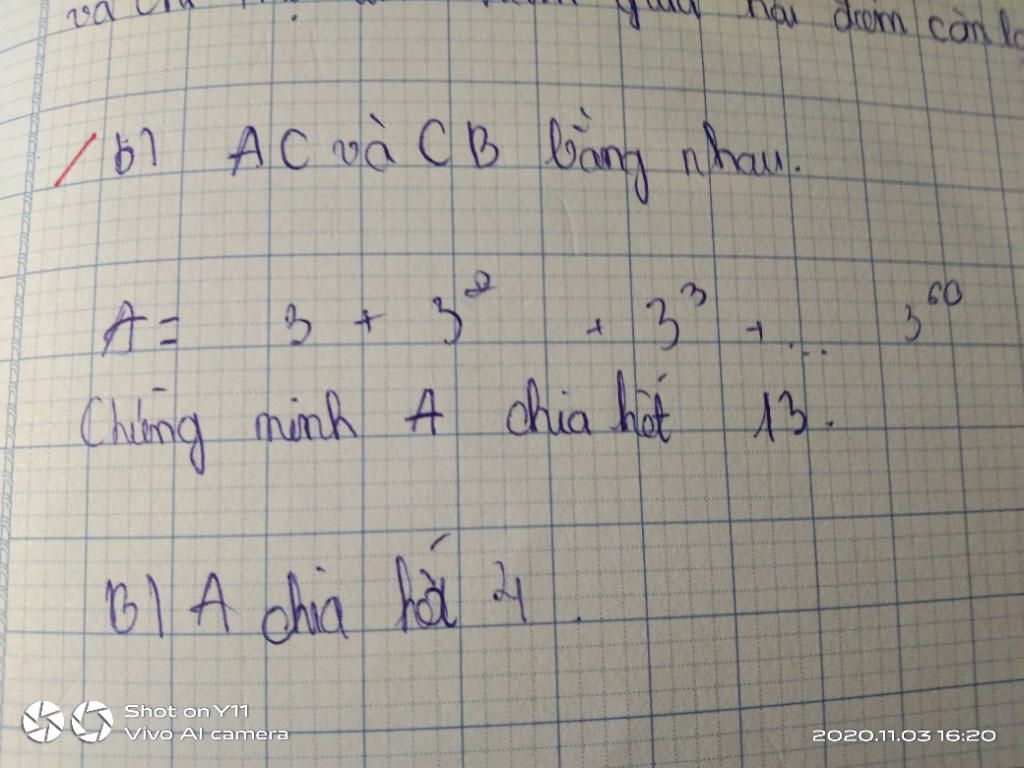 và còn lạ
b) AC và CB bằng nhau.
A = 3 + 3² + 3³ + ... 3⁶⁰
Chứng minh A chia hết 13.
B) A chia hết 4.
Shot on Y11
Vivo AI camera
2020.11.03 16:20